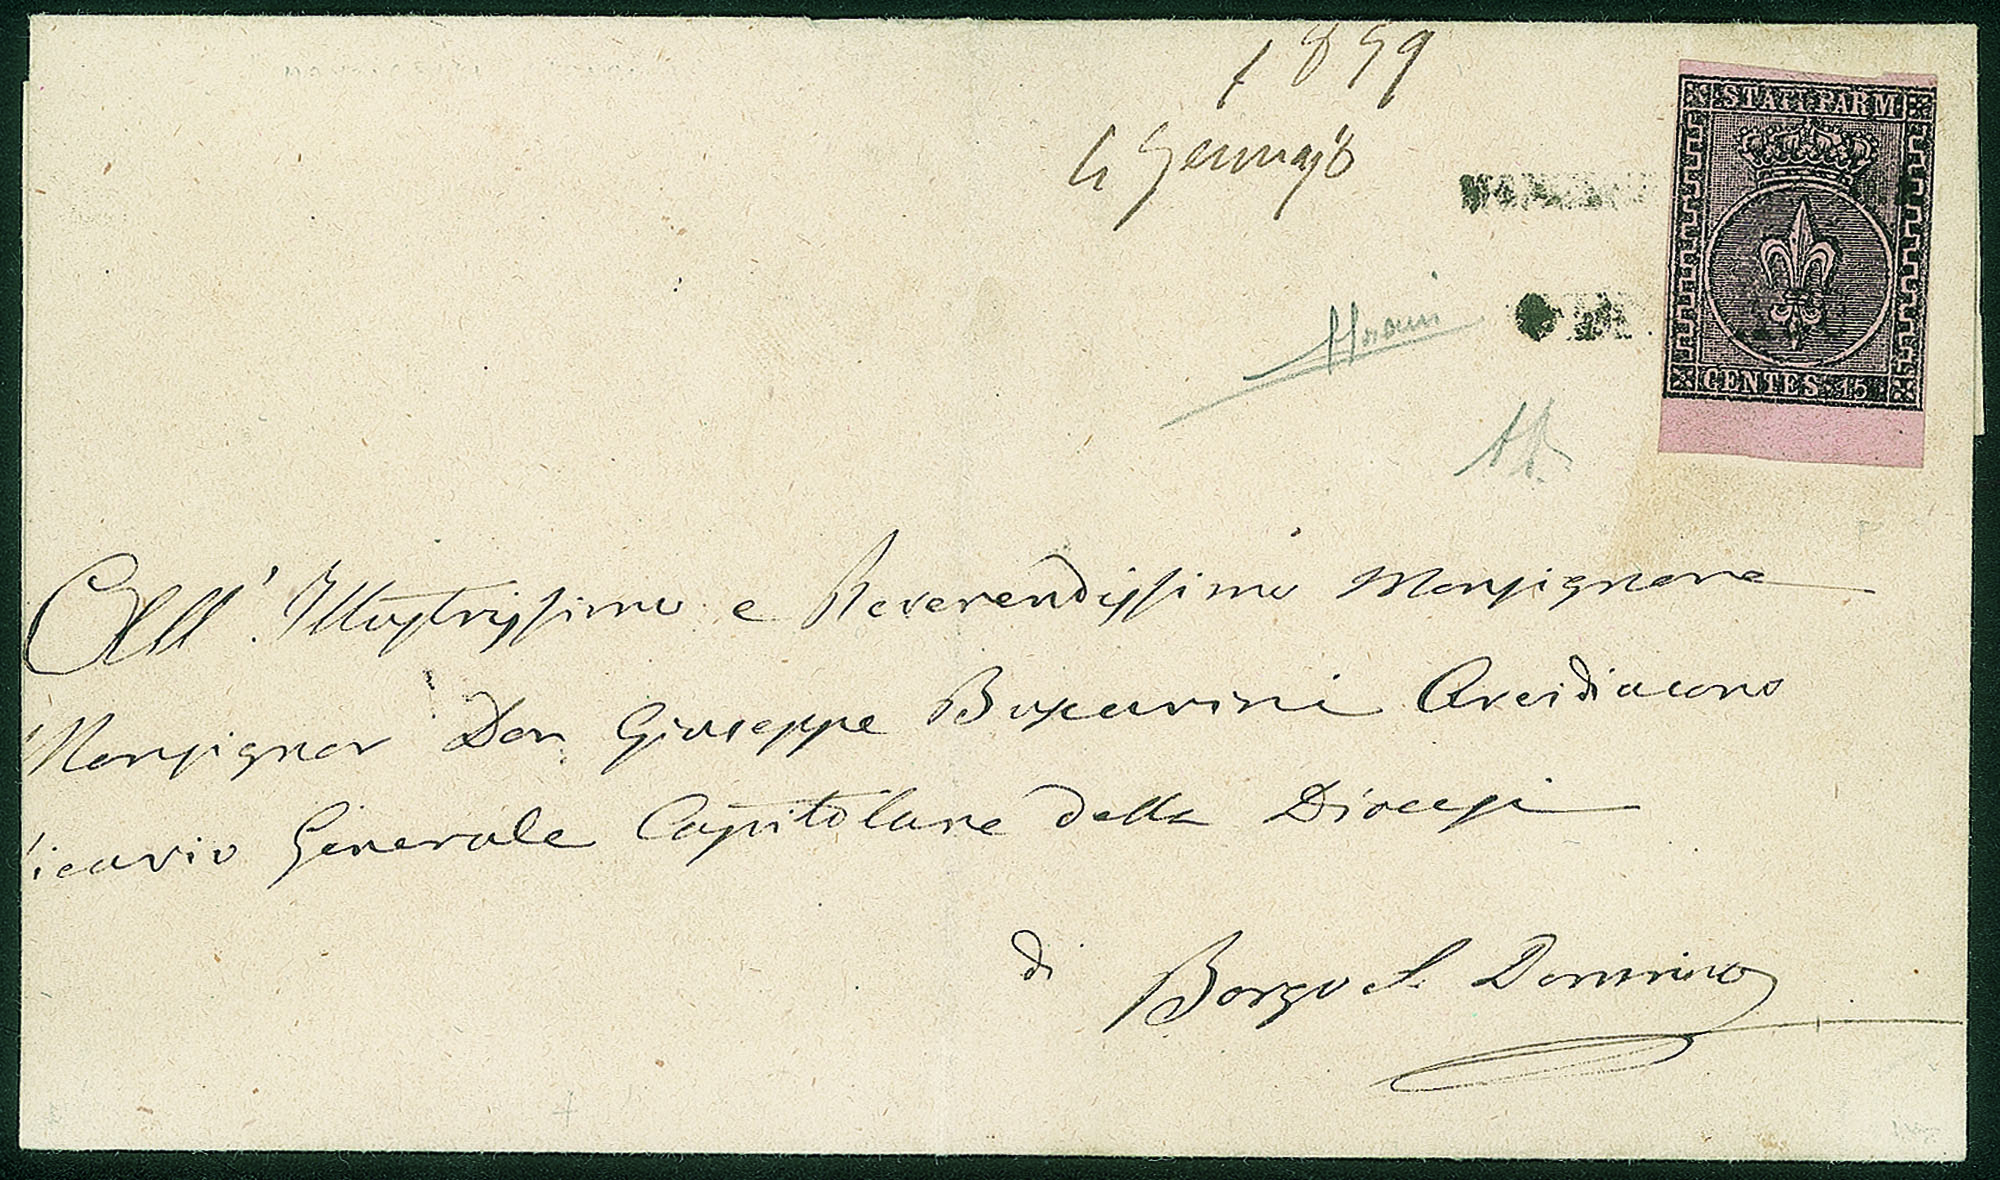 1859
Gennajo
STATI PARM
CENTES. 15
All' Illustrissimo e Reverendissimo Monsignore
Monsignor Don Giuseppe Buscarini Arcidiacono
icario Generale Capitolare della Diocesi
di Borgo S. Donnino